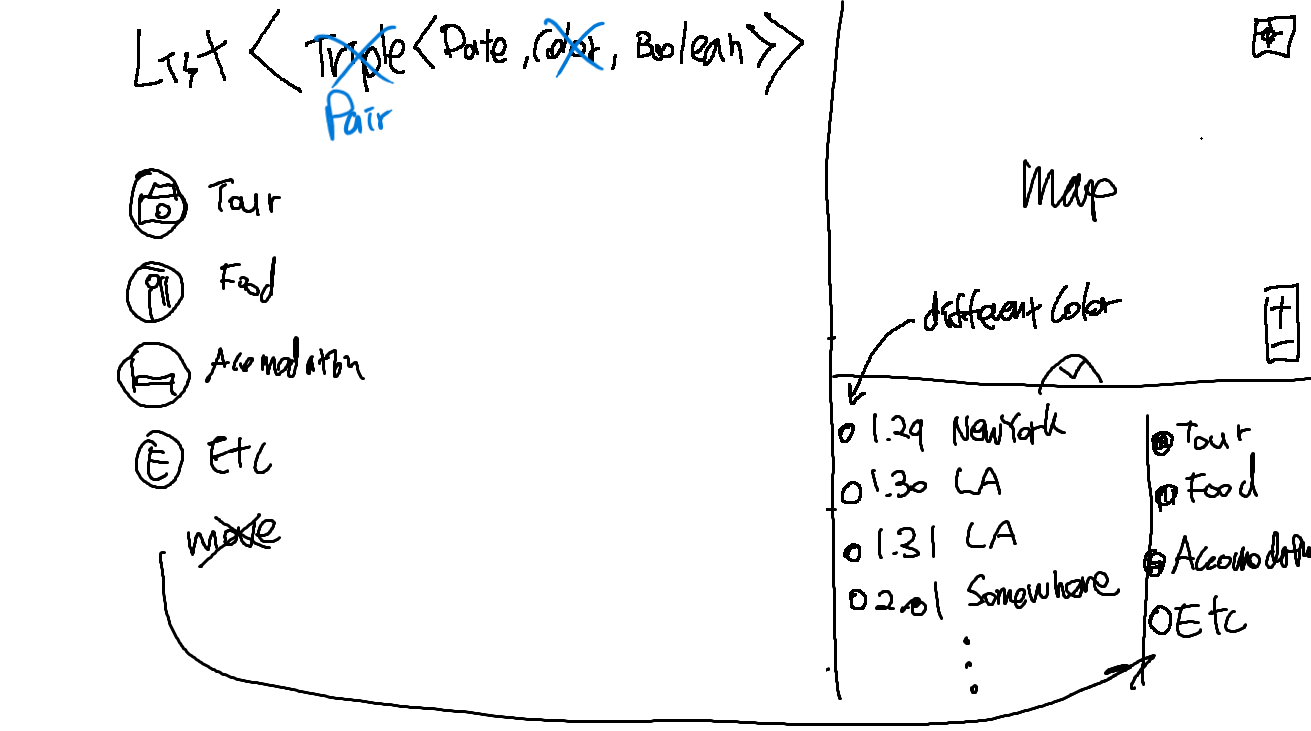 List < Triple <Date, Color, Boolean>>
Pair
Tour
Food
Accomodation
E Etc
move
Map
+
−
different Color
1.29 NewYork
1.30 LA
1.31 LA
2.01 Somewhere
Tour
Food
Accomodation
Etc